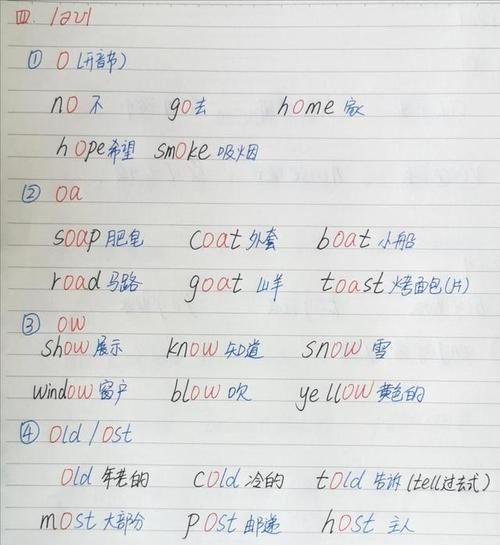 四. /əʊ/
① O (开音节)
no 不 go去 home 家
hope希望 smoke 吸烟
② oa
soap 肥皂 coat 外套 boat 小船
road 马路 goat 山羊 toast 烤面包(片)
③ ow
show 展示 know 知道 snow 雪
window 窗户 blow 吹 yellow 黄色的
④ old / ost
old 年老的 cold 冷的 told 告诉 (tell过去式)
most 大部分 post 邮递 host 主人